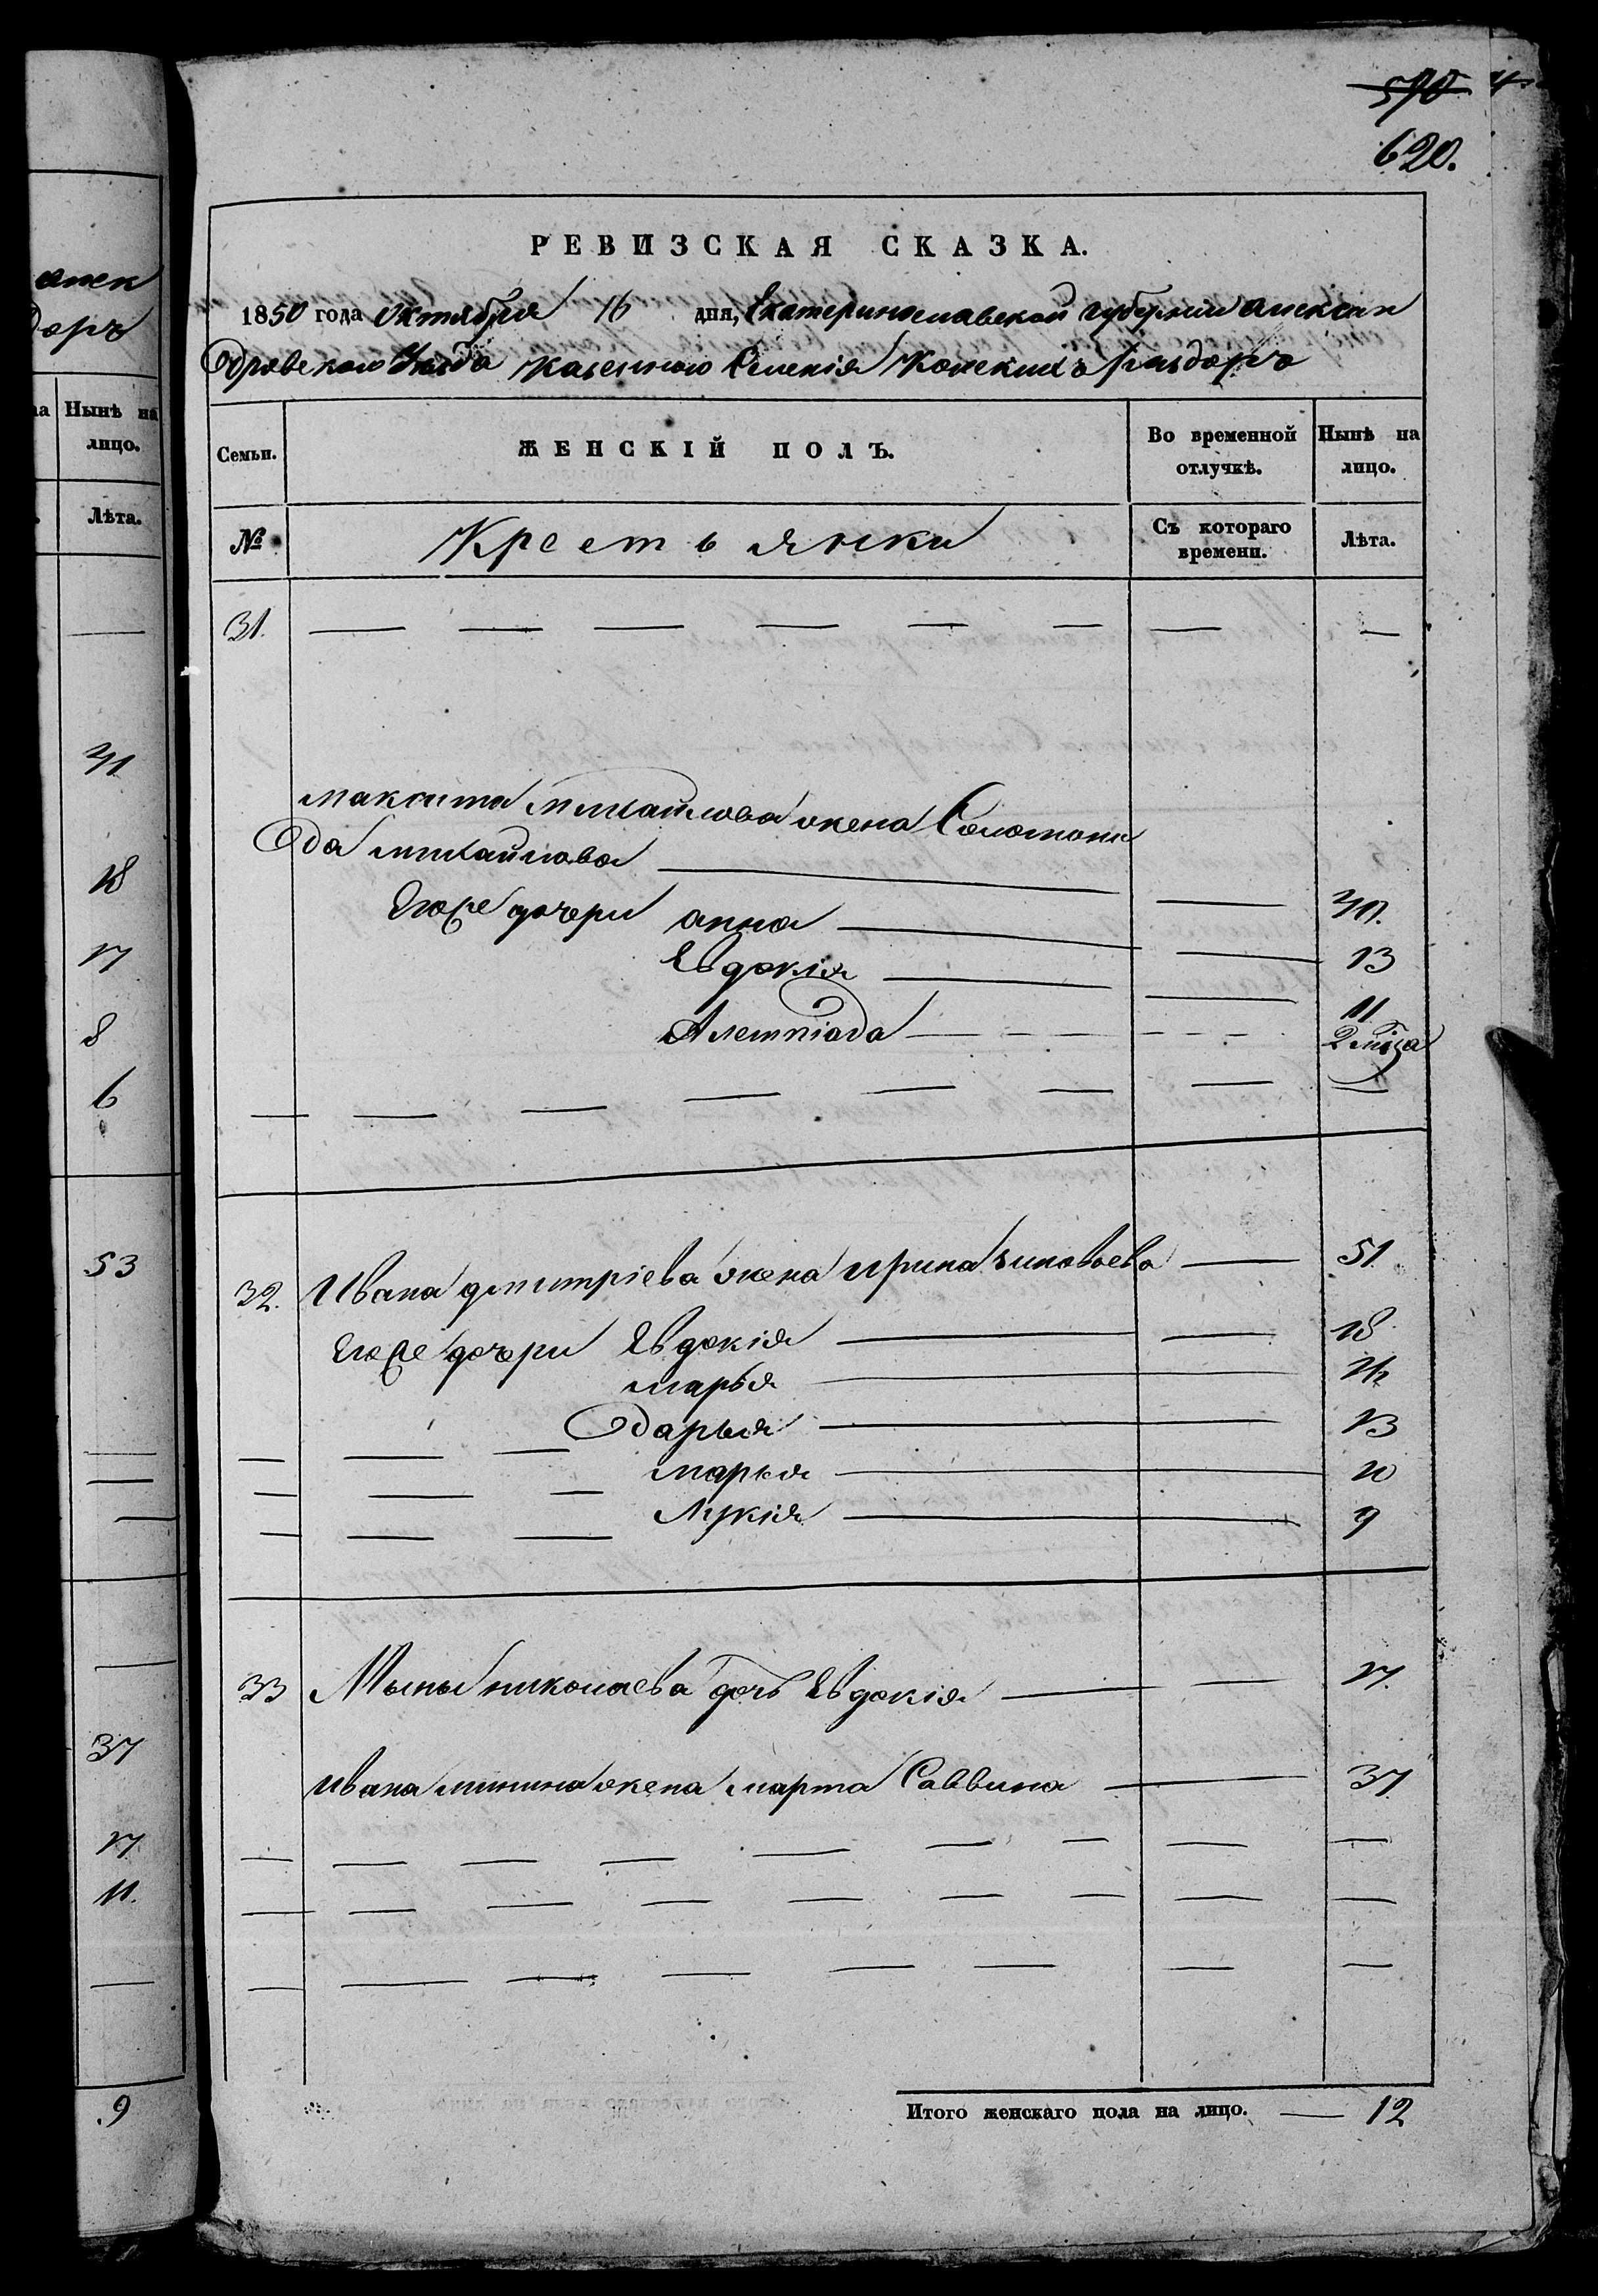 анек
доръ
Нынѣ на
лицо.
Лѣта.
41
18
17
8
6
53
37
17
11.
9
590
620.
РЕВИЗСКАЯ СКАЗКА.
1850 года Октября 16 дня, Екатеринославской губернии Алексан
дровскаго Уезда казеннаго Селенія Конскихъ раздоръ
Семьи.
ЖЕНСКІЙ ПОЛЪ.
Во временной отлучкѣ.
Нынѣ на лицо.
№
Крестьянки
Съ котораго времени.
Лѣта.
31.
Максима Михайлова жена Соломони
да михайлова
Егоже дочери анна 40.
Евдокія 13
Алемпіада 11
2 мца
32. Ивана дмитріева жена ирина зиновьева 51
Егоже дочери Евдокія 18
марья 14
дарья 13
марья 10
Лукія 9
33 Мины николаева дочь Евдокія 17.
Ивана минина жена марта Саввина 37
Итого женскаго пола на лицо. 12